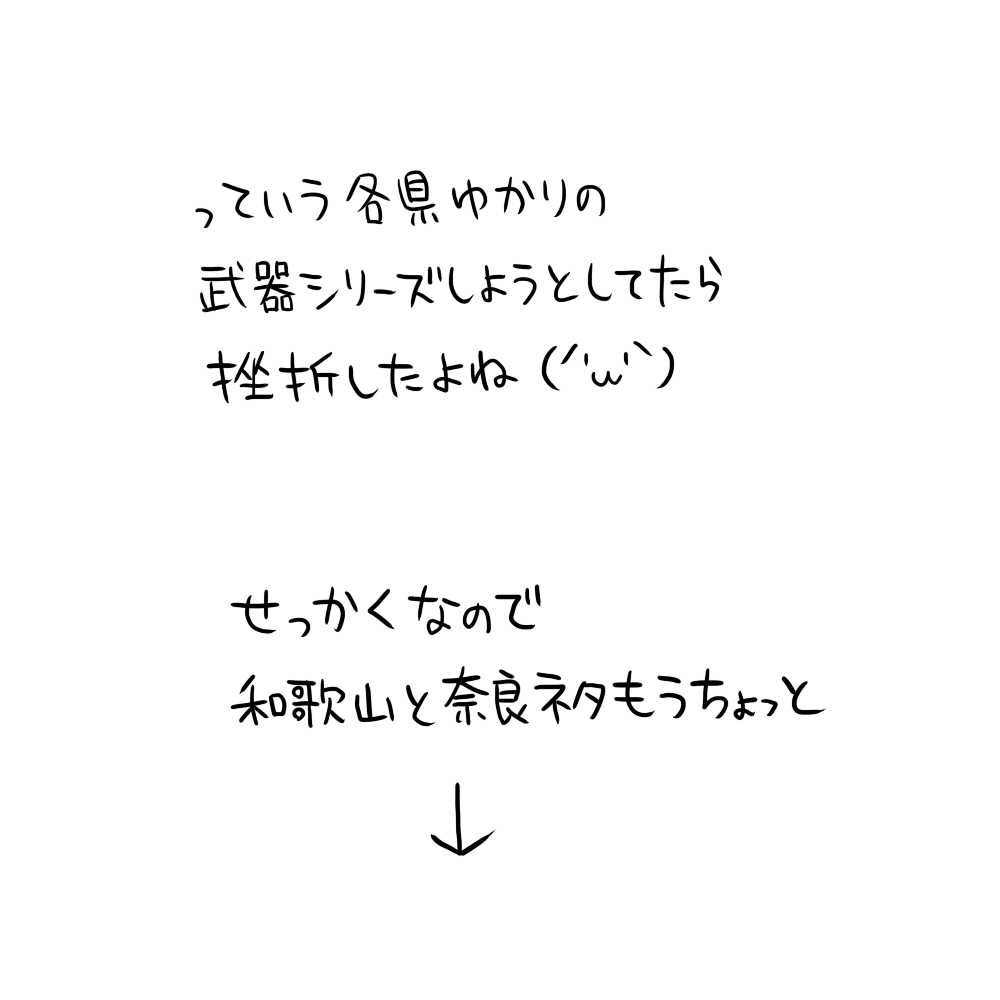 っていう各県ゆかりの
武器シリーズしようとしてたら
挫折したよね(´'ω'｀)
せっかくなので
和歌山と奈良ネタもうちょっと
↓